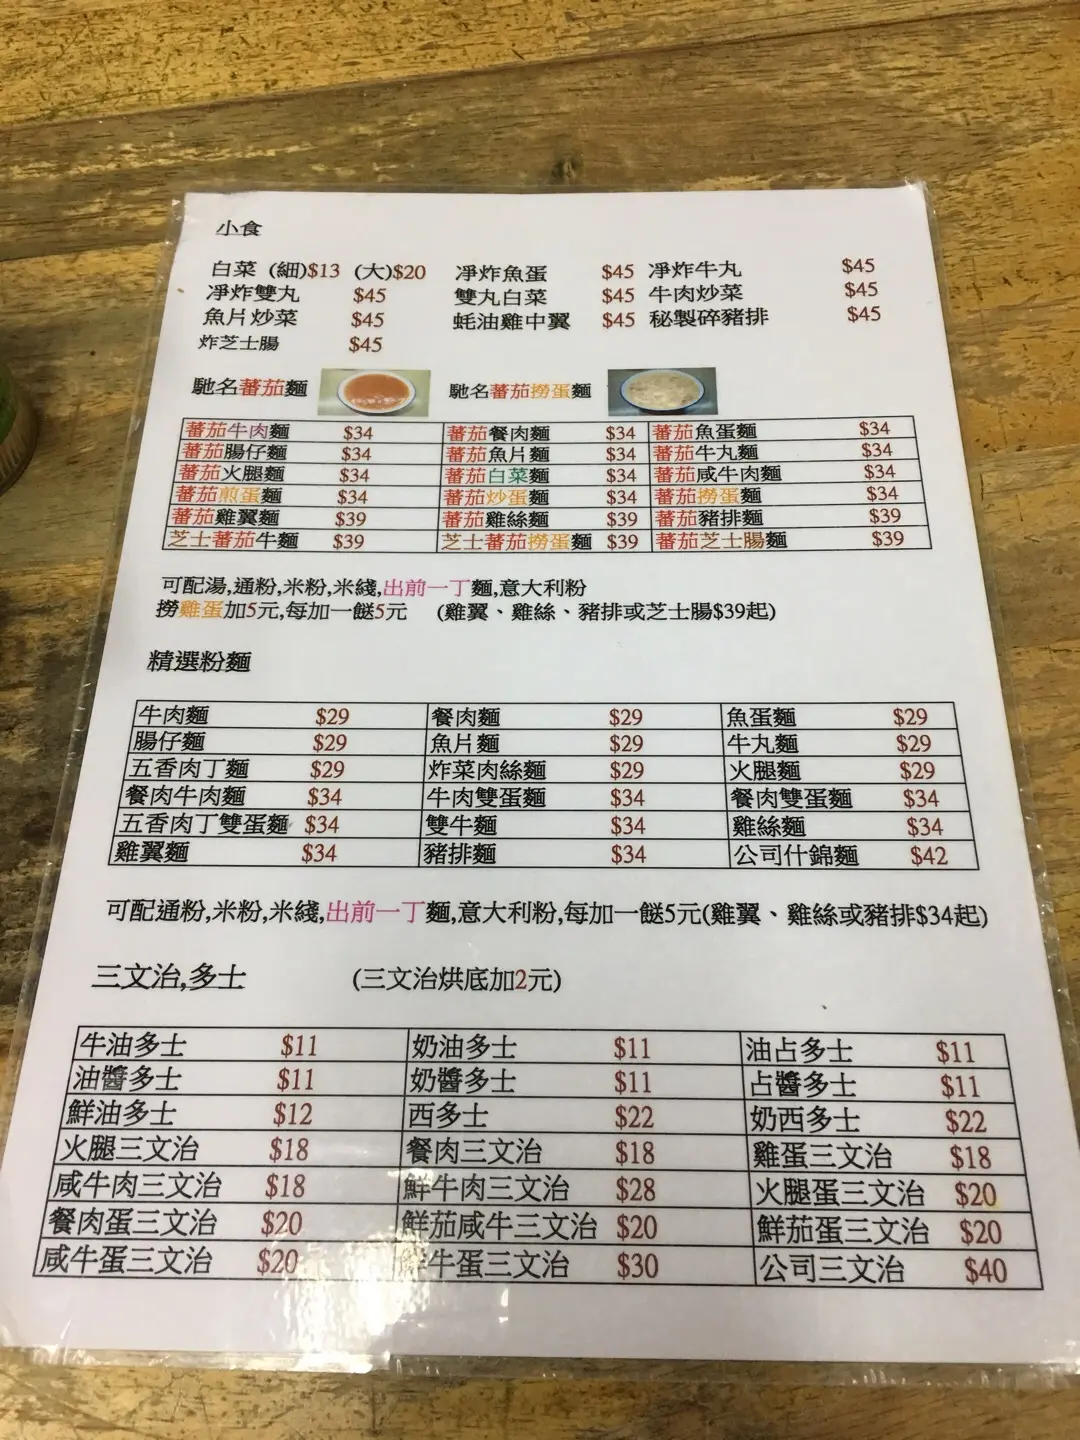 小食
白菜 (細)$13 (大)$20 凈炸魚蛋 $45 凈炸牛丸 $45
凈炸雙丸 $45 雙丸白菜 $45 牛肉炒菜 $45
魚片炒菜 $45 蚝油雞中翼 $45 秘製碎豬排 $45
炸芝士腸 $45
馳名蕃茄麵 馳名蕃茄撈蛋麵
蕃茄牛肉麵 $34 蕃茄餐肉麵 $34 蕃茄魚蛋麵 $34
蕃茄腸仔麵 $34 蕃茄魚片麵 $34 蕃茄牛丸麵 $34
蕃茄火腿麵 $34 蕃茄白菜麵 $34 蕃茄咸牛肉麵 $34
蕃茄煎蛋麵 $34 蕃茄炒蛋麵 $34 蕃茄撈蛋麵 $34
蕃茄雞翼麵 $39 蕃茄雞絲麵 $39 蕃茄豬排麵 $39
芝士蕃茄牛麵 $39 芝士蕃茄撈蛋麵 $39 蕃茄芝士腸麵 $39
可配湯,通粉,米粉,米綫,出前一丁麵,意大利粉
撈雞蛋加5元,每加一餸5元 (雞翼、雞絲、豬排或芝士腸$39起)
精選粉麵
牛肉麵 $29 餐肉麵 $29 魚蛋麵 $29
腸仔麵 $29 魚片麵 $29 牛丸麵 $29
五香肉丁麵 $29 炸菜肉絲麵 $29 火腿麵 $29
餐肉牛肉麵 $34 牛肉雙蛋麵 $34 餐肉雙蛋麵 $34
五香肉丁雙蛋麵 $34 雙牛麵 $34 雞絲麵 $34
雞翼麵 $34 豬排麵 $34 公司什錦麵 $42
可配通粉,米粉,米綫,出前一丁麵,意大利粉,每加一餸5元(雞翼、雞絲或豬排$34起)
三文治,多士 (三文治烘底加2元)
牛油多士 $11 奶油多士 $11 油占多士 $11
油醬多士 $11 奶醬多士 $11 占醬多士 $11
鮮油多士 $12 西多士 $22 奶西多士 $22
火腿三文治 $18 餐肉三文治 $18 雞蛋三文治 $18
咸牛肉三文治 $18 鮮牛肉三文治 $28 火腿蛋三文治 $20
餐肉蛋三文治 $20 鮮茄咸牛三文治 $20 鮮茄蛋三文治 $20
咸牛蛋三文治 $20 鮮牛蛋三文治 $30 公司三文治 $40